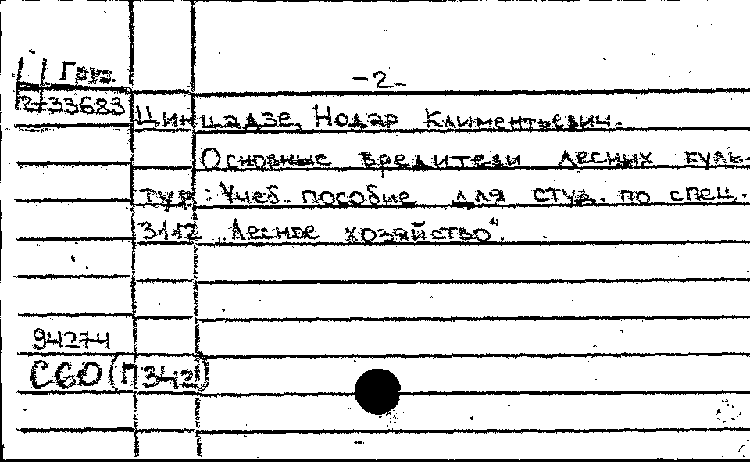 Груз.
-2-
2-33683
Цинцадзе, Нодар Климентьевич.
Основные вредители лесных куль-
тур: Учеб. пособие для студ. по спец.
3112 „Лесное хозяйство".
94274
С60(П342)